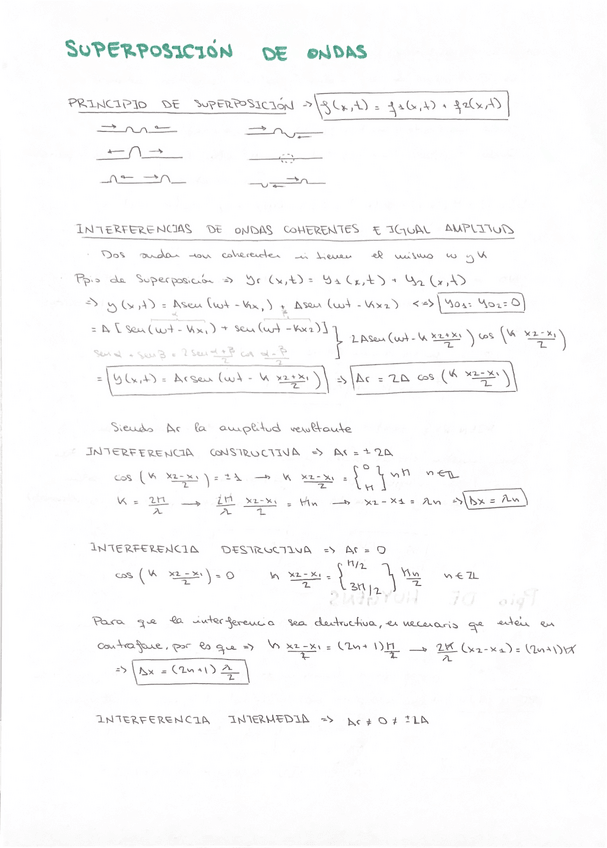 SUPERPOSICIÓN DE ONDAS
PRINCIPIO DE SUPERPOSICIÓN → f(x,t) = f1(x,t) + f2(x,t)
INTERFERENCIAS DE ONDAS COHERENTES E IGUAL AMPLITUD
Dos ondas son coherentes si tienen el mismo w y K
Ppio de Superposición => yr (x,t) = y1 (x,t) + y2 (x,t)
=> y(x,t) = Asen (wt - Kx1) + Asen (wt - Kx2) <=> y01 = y02 = 0
= A [sen(wt - Kx1) + sen(wt - Kx2)] } 2Asen(wt - K (x2+x1)/2) cos (K (x2-x1)/2)
senα + senβ = 2sen (α+β)/2 cos (α-β)/2
= y(x,t) = Arsen (wt - K (x2+x1)/2) => Ar = 2A cos (K (x2-x1)/2)
Siendo Ar la amplitud resultante
INTERFERENCIA CONSTRUCTIVA => Ar = ±2A
cos (K (x2-x1)/2) = ±1 → K (x2-x1)/2 = {0 π} nπ n∈Z
K = 2π/λ → 2π/λ (x2-x1)/2 = πn → x2-x1 = λn => Δx = λn
INTERFERENCIA DESTRUCTIVA => Ar = 0
cos (K (x2-x1)/2) = 0 K (x2-x1)/2 = {π/2 3π/2} πn/2 n∈Z
Para que la interferencia sea destructiva, es necesario que estén en
contrafase, por lo que => K (x2-x1)/2 = (2n+1) π/2 → 2π/λ (x2-x1) = (2n+1)π
=> Δx = (2n+1) λ/2
INTERFERENCIA INTERMEDIA => Ar ≠ 0 ≠ ±2A